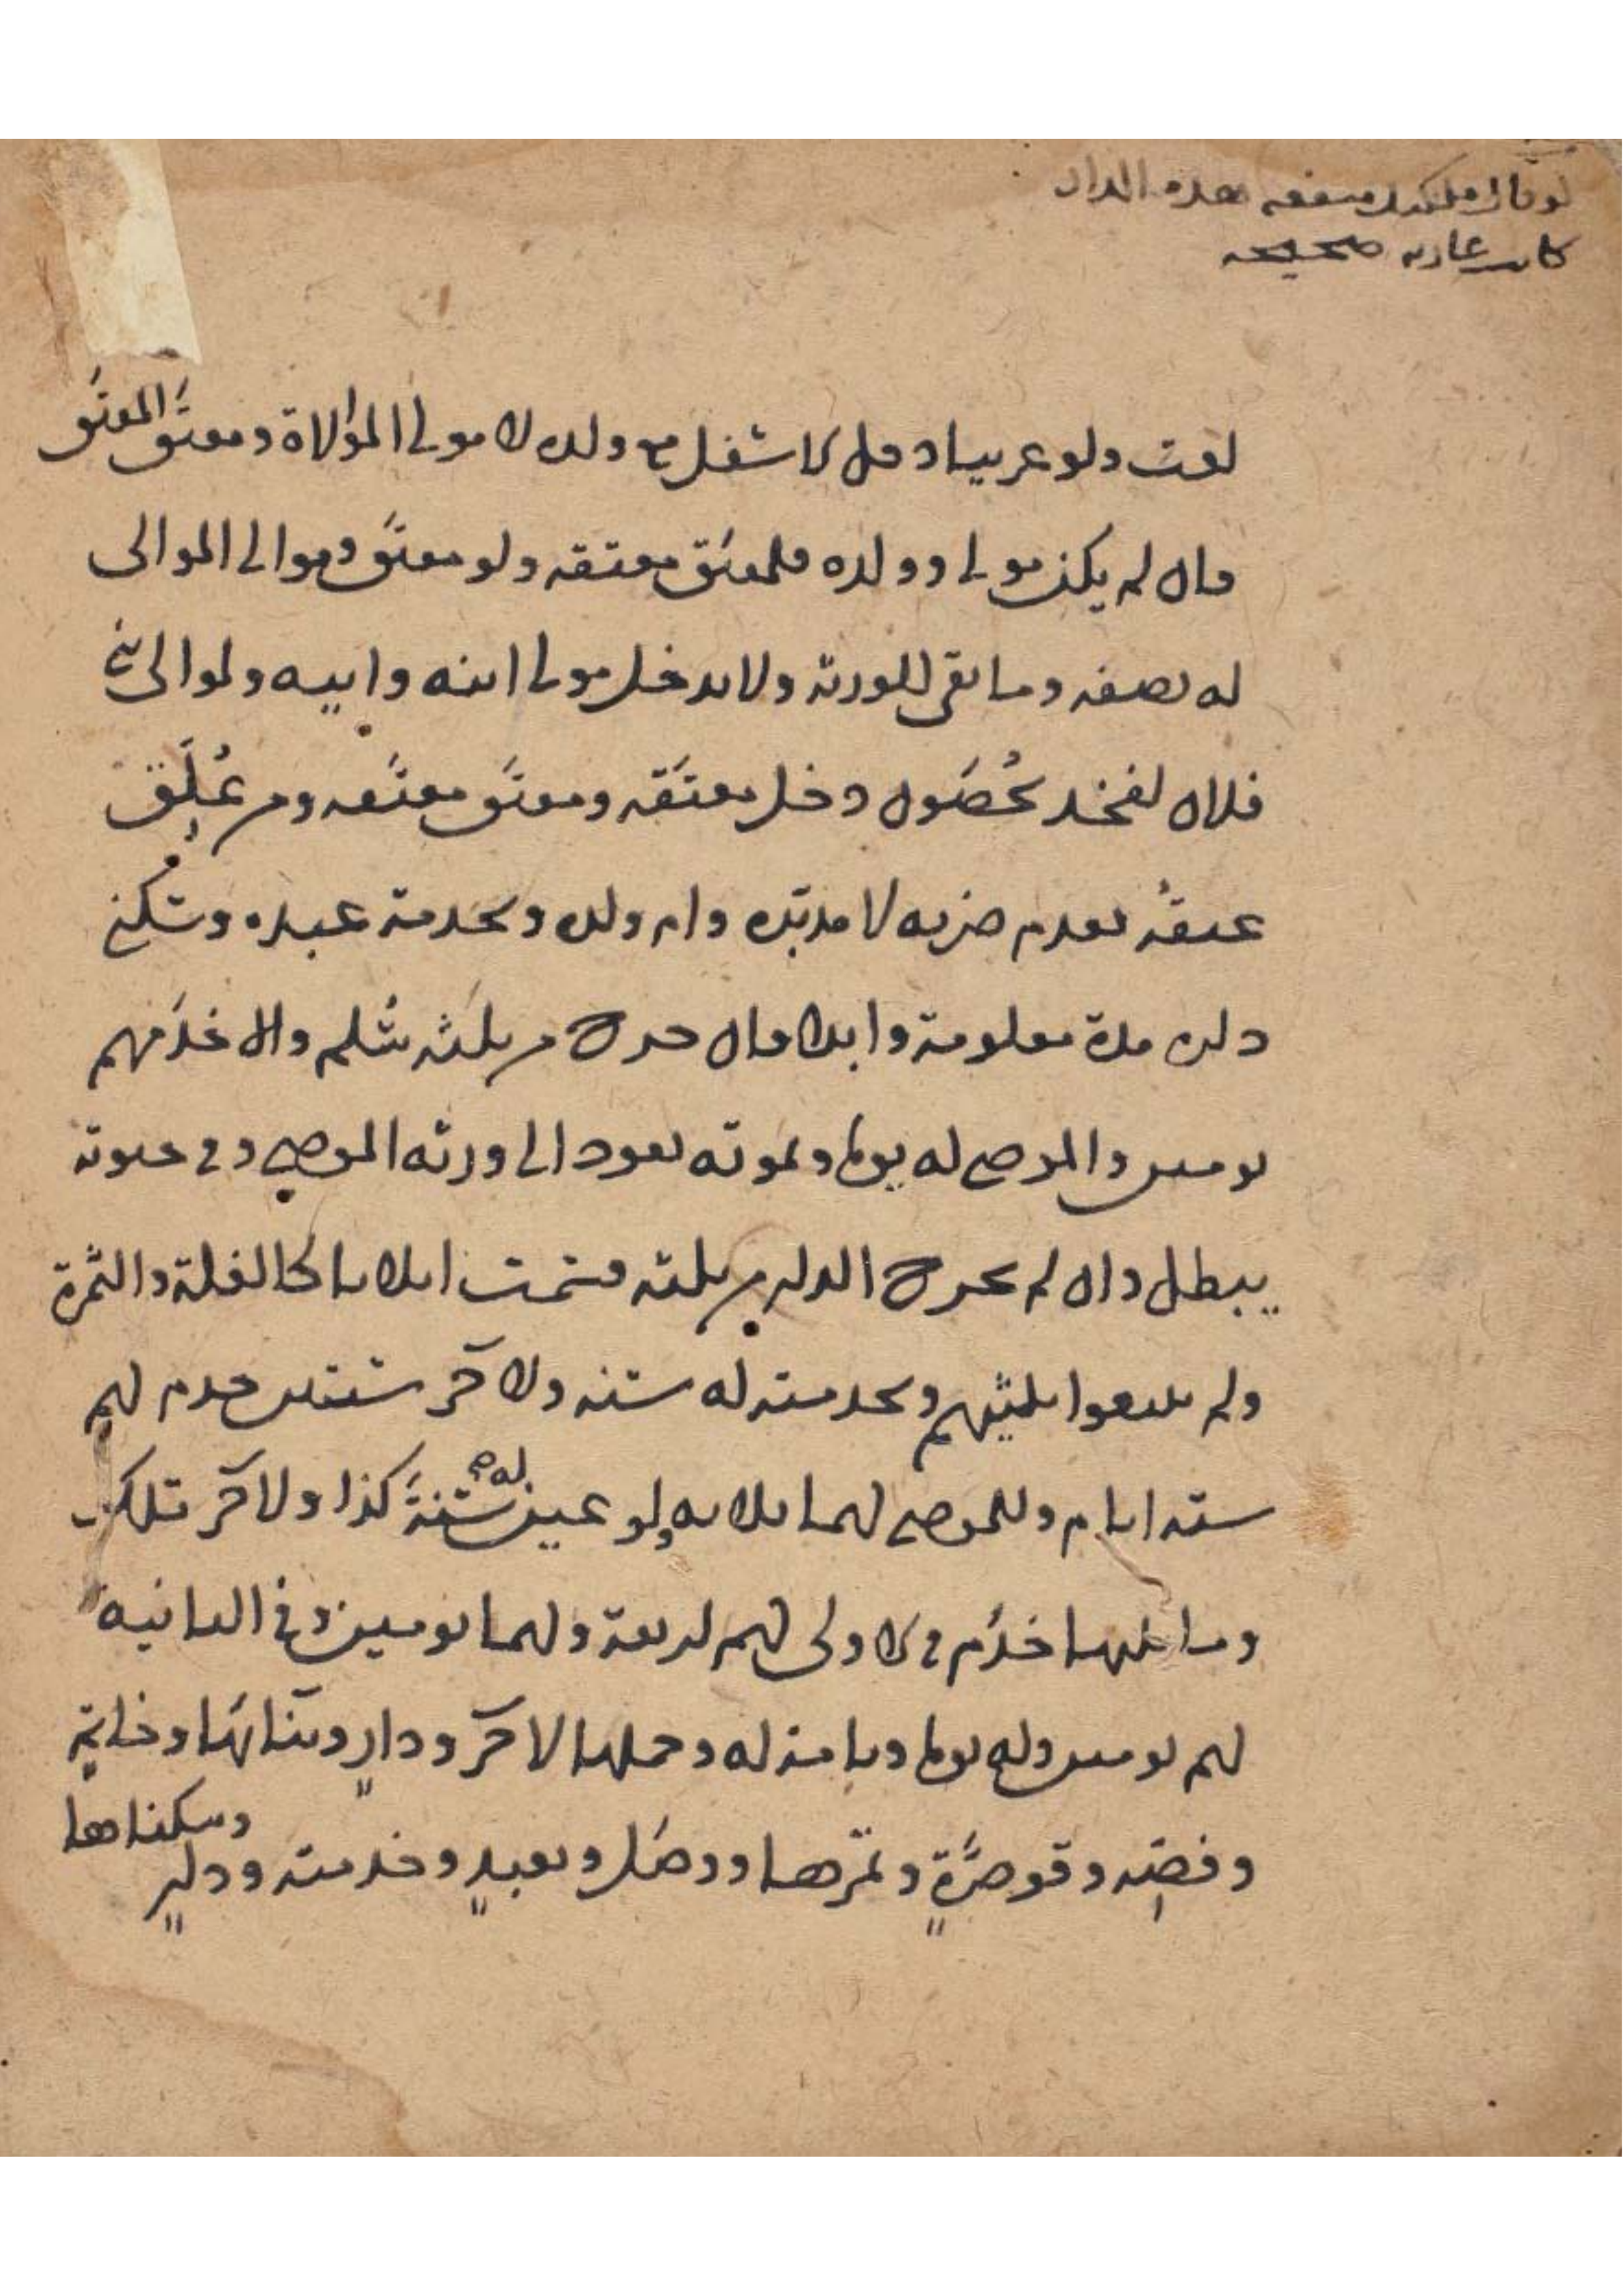 لو قال ملكتك منفعة هذه الدار
كانت عارية صحيحة
لغت ولو عربيا دخل الاسفل مع ولده لا مولى الموالاة ومعتق المعتق
فان لم يكن مولى وولده فلمعتق معتقه ولو معتق وموالى الموالى
له نصفه وما بقى للورثة ولا يدخل مولى ابنه وابيه ولموالى بنى
فلان لفخذ يُحصَون دخل معتَقه ومعتَق معتَقه ومن عُلِّق
عتقُه بعدم ضربه لا مدبّره وام ولده وبخدمة عبده وسكنى
داره مدة معلومة وابدا فان خرج من ثلثه سُلم والا خدَمهم
يومين والموصى له يوما وبموته يعود الى ورثه الموصِى وفى حيوته
يبطل وان لم تخرج الدار من ثلثه قسمت اثلاثا كالغلة والثمرة
ولم يبيعوا ثلثيهم وبخدمته له سنه ولآخر سنتين خدم لهم
سته ايام وللموصى لهما ثلاثه ولو عين له سَنَةَ كذا ولآخر تلك
وما تليها خدَم فى الاولى لهم اربعة ولهما يومين وفى الثانيه
لهم يومين وله يوما وبامة له وحملها لآخر ودارٍ وبنائها وخاتمٍ
وفصّه وقوصرّةٍ وتمرها ونصل وبعبدٍ وخدمته ودارٍ
وسكناها